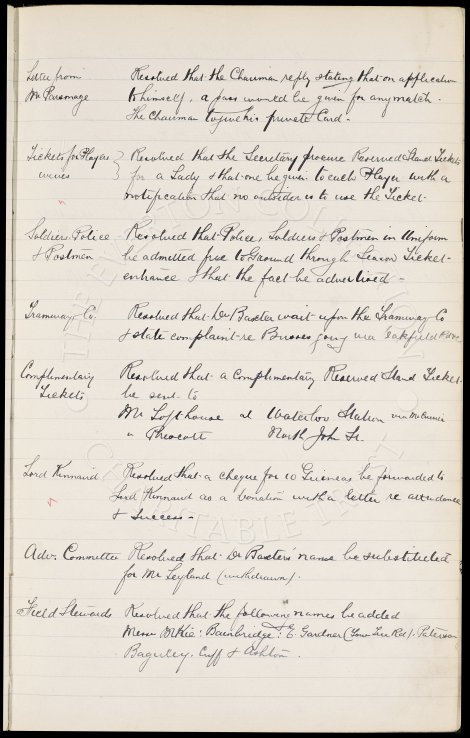 Letter from Resolved that the Chairman reply stating that on application
Mr Parsonage to himself, a pass would be given for any match.
The Chairman to give his private Card.
Tickets for Players Resolved that the Secretary procure Reserved Stand Tickets
wives for a Lady & that one be given to each Player with a
notification that no outsider is to use the Ticket.
Soldiers Police Resolved that Police, Soldiers & Postmen in Uniform
& Postmen be admitted free to Ground through Season Ticket
entrance & that the fact be advertised.
Tramway Co. Resolved that Dr Baxter wait upon the Tramway Co
& state complaint re Busses going via Oakfield
Complimentary Resolved that a Complimentary Reserved Stand Ticket
Tickets be sent to
Mr Lofthouse at Waterloo Station
" Prescott North John St.
Lord Kinnaird Resolved that a cheque for 10 Guineas be forwarded to
Lord Kinnaird as a donation with a letter re attendance
& success.
Adv. Committee Resolved that Dr Baxters name be substituted
for Mr Leyland (withdrawn).
Field Stewards Resolved that the following names be added
Messrs Bainbridge: E. Gardner Paterson
Baguley. Cuff & Ashton.
THE EVERTON COLLECTION
CHARITABLE TRUST